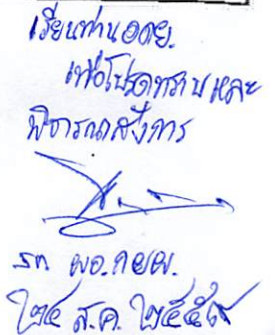 เรียนท่าน อดย.
เพื่อโปรดทราบและ
พิจารณาสั่งการ
รก. ผอ.กยผ.
๒๔ ส.ค. ๒๕๕๙